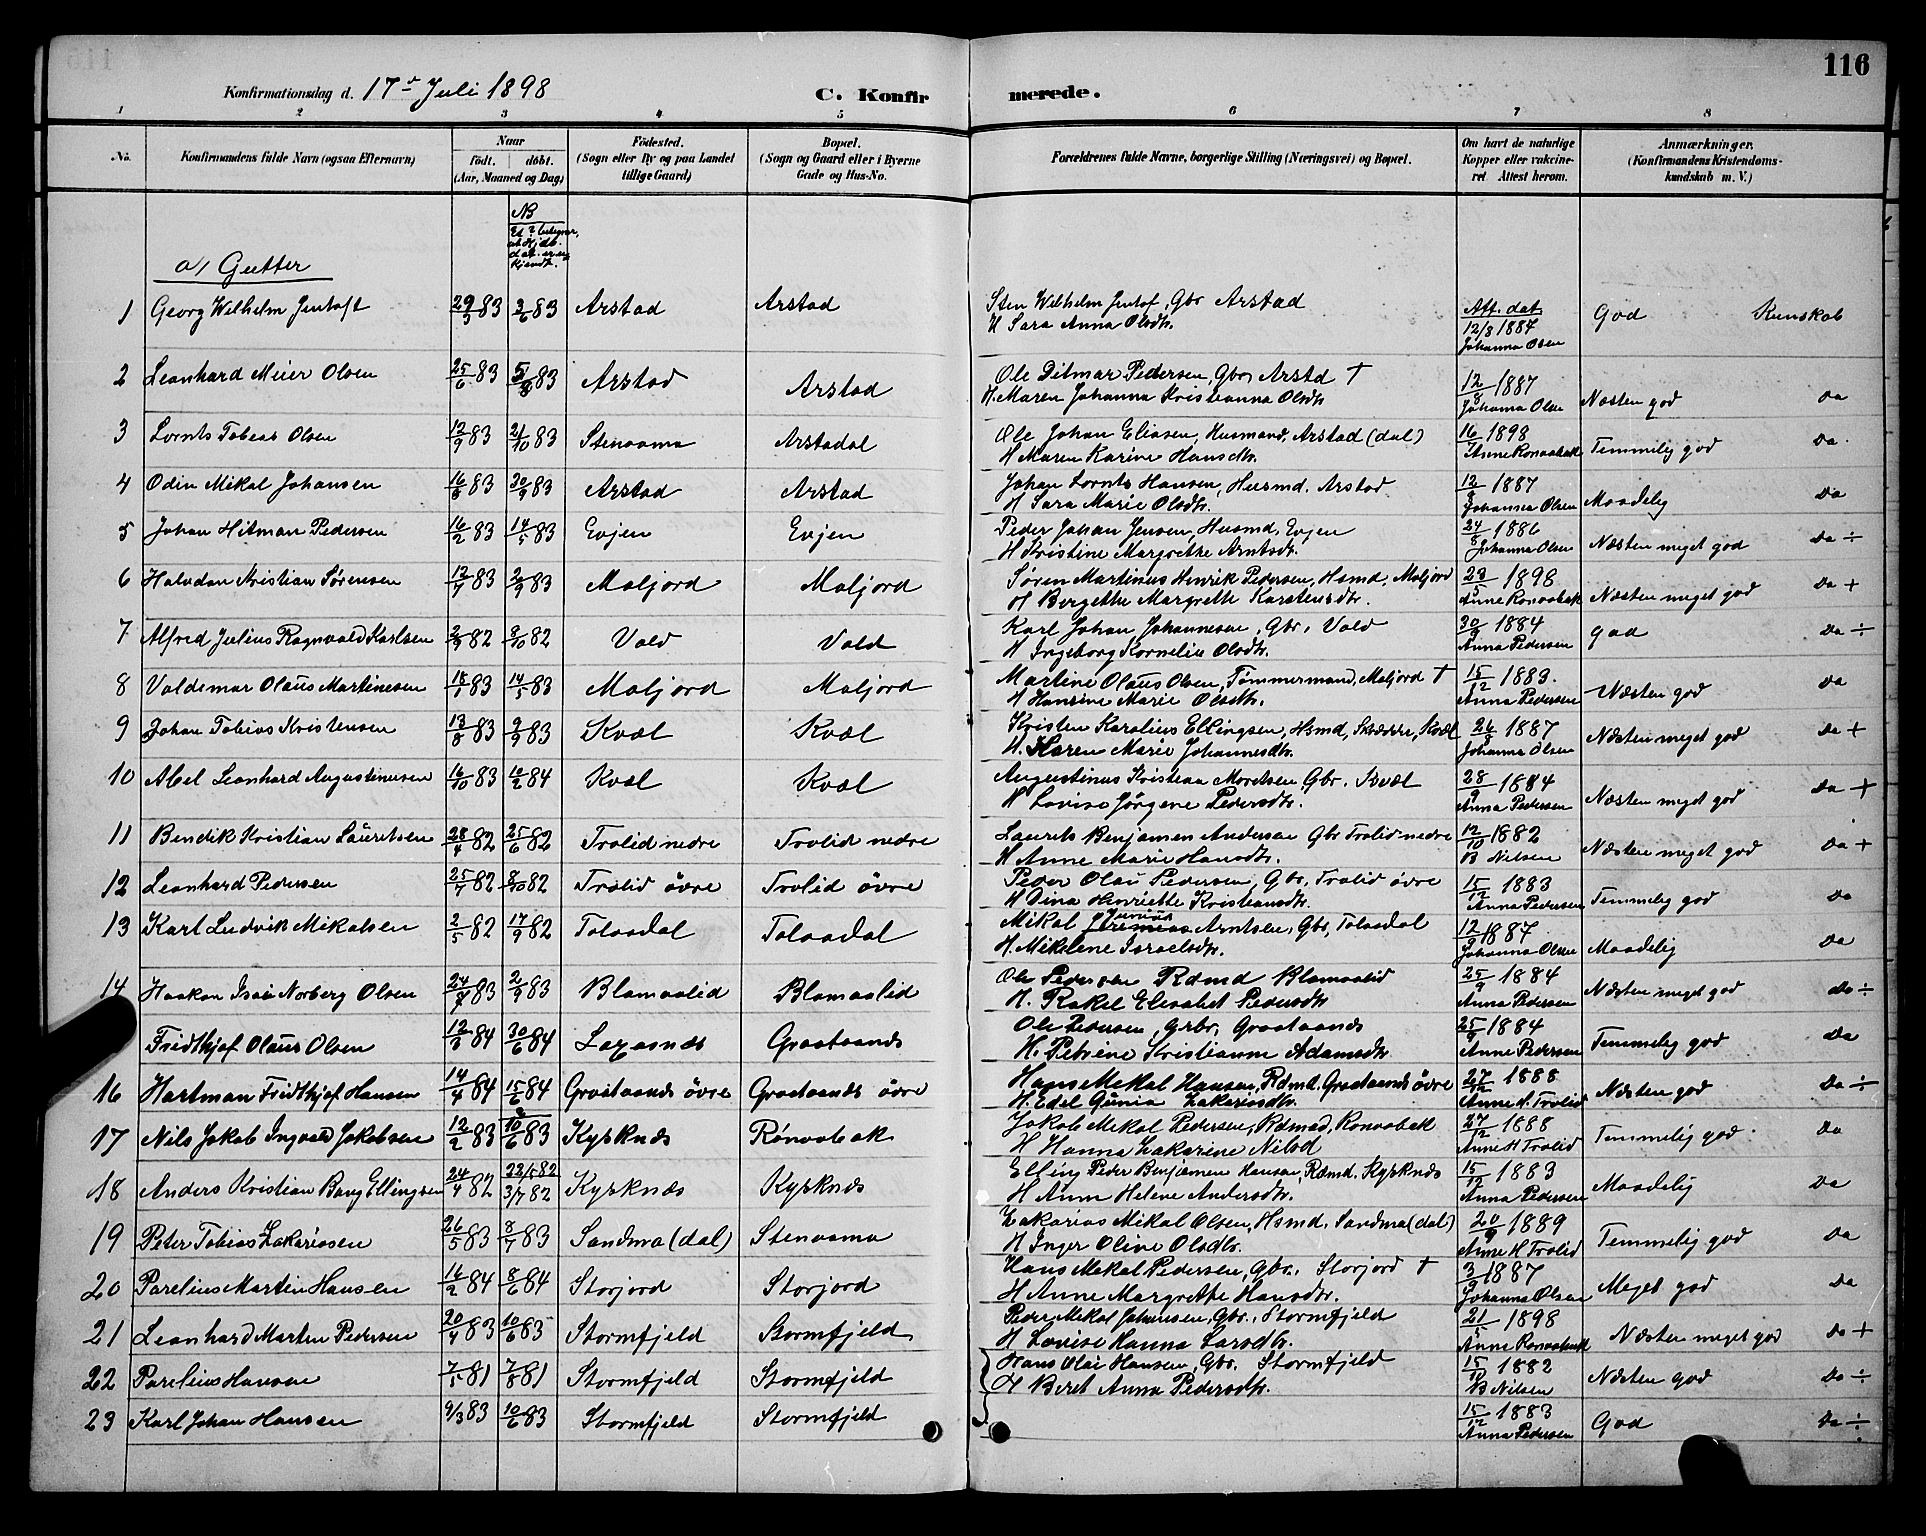 116
Konfirmationsdag d. 17de Juli 1898 C. Konfirmerede.
1 2 3 4 5 6 7 8
No. Konfirmandens fulde Navn (ogsaa Efternavn) Naar födt. döbt. (Aar, Maaned og Dag) Födested. (Sogn eller By og paa Landet tillige Gaard) Bopæl. (Sogn og Gaard eller i Byerne Gade og Hus-No. Forældrenes fulde Navne, borgerlige Stilling (Næringsvei) og Bopæl. Om havt de naturlige Kopper eller vakcineret Attest herom. Anmærkninger. (Konfirmandens Kristendomskundskab m. V.)
NB
a/ Gutter
1 Georg Wilhelm Jentoft 29/3 83 3/6 83 Arstad Arstad Sten Wilhelm Jentof, Gbr Arstad Att. dat. God Kunskab
H Sara Anna Olsdtr. 12/8 1884 Johanna Olsen
2 Leonhard Meier Olsen 25/6 83 5/8 83 Arstad Arstad Ole Ditmar Pedersen, Gbr, Arstd † 12/8 1887 Næsten god Do
H. Maren Johanna Kristianna Olsdtr Johanna Olsen
3 Lornts Tobias Olsen 12/9 83 21/10 83 Stenaama Arstadal Ole Johan Eliasen, Husmand, Arstad (dal) 16 1898 Temmelig god Do
H Maren Karine Hansdtr. Ronaabak
4 Odin Mikal Johansen 16/8 83 30/9 83 Arstad Arstad Johan Lornts Hansen, Husmd. Arstad 12/8 1887 Maadelig Do
H Sara Marie Olsdtr. Johanna Olsen
5 Johan Hitman Pedersen 16/2 83 14/5 83 Evjen Evjen Peder Johan Jensen, Husmd, Evjen 24/8 1886 Næsten meget god Do ÷
H Kristine Margrethe Arntsdtr. Johanna Olsen
6 Halvdan Kristian Sørensen 12/7 83 2/9 83 Maljord Maljord Søren Martinus Henrik Pedersen, Hsmd, Maljord 23/5 1898 Næsten meget god Do +
H Bergethe Margrethe Karstensdtr. Anne Ronaabak
7 Alfred Julius Ragnvald Karlsen 2/9 82 8/10 82 Vald Vald Karl Johan Johannesen, Gbr, Vald 30/9 1884 God Do ÷
H Ingeborg Kornelia Olsdtr. Anna Pedersen
8 Valdemar Olaus Martinesen 18/1 83 14/5 83 Maljord Maljord Martine Olaus Olsen, Tømmermand, Maljord † 15/12 1883. Næsten god Do
H Hansine Marie Olsdtr. Anna Pedersen
9 Johan Tobias Kristensen 13/8 83 2/9 83 Kvæl Kvæl Kristen Karolius Ellingsen, Hsmd, Skrædder, Kvæl 26/8 1887 Næsten meget god Do +
H. Karen Marie Johannesdtr. Johanna Olsen
10 Abel Leonhard Augustinusen 16/10 83 10/2 84 Kvæl Kvæl Augustinus Kristian Moretsen, Gbr. Kvæl 28/9 1884 Næsten meget god Do +
H Lovise Jørgene Pedersdtr. Anna Pedersen
11 Bendik Kristian Lauritsen 28/4 82 25/6 82 Trolid nedre Trolid nedre Laurits Benjamen Andersen Gbr Trolid nedre 12/10 1882 Næsten meget god Do +
H Anne Marie Hansdtr. B Nilsen
12 Leonhard Pedersen 25/7 82 8/10 82 Trolid övre Trolid övre Peder Olai Pedersen, Gbr, Trolid övre 15/12 1883 Temmelig god Do
H Dina Henriette Kristiansdtr. Anna Pedersen
13 Karl Ludvik Mikalsen 2/5 82 17/9 82 Tolaadal Tolaadal Mikal Arntsen, Gbr, Tolaadal 12/8 1887 Maadelig Do
H. Mikeline Israelsdtr. Johanna Olsen
14 Haakon Isai Norberg Olsen 24/7 83 2/9 83 Blamaalid Blamaalid Ole Pedersen Rdmd Blamaalid 25/9 1884 Næsten meget god Do ÷
H. Rakel Elisabet Pedersdtr Anna Pedersen
Fridthjof Olaus Olsen 12/3 84 30/6 84 Laxesnæs Graataands Ole Pedersen, Grbr, Graataands 25/9 1884 Temmelig god Do
H. Petrine Kristianna Adamsdtr Anne Pedersen
16 Hartman Fridthjof Hansen 14/4 84 15/6 84 Graataands övre Graataands övre Hans Mekal Hansen, Rdmd. Graataands övre 27/12 1888 Næsten god Do ÷
H. Edel Gunia Zakariasdtr. Anne H. Trolid
17 Nils Jakob Ingvald Jakobsen 12/2 83 10/6 83 Kysknæs Rønaabak Jakob Mekal Pedersen, Rdmad, Ronaabak 27/12 1888 Temmelig god Do
H Hanna Zakarine Nilsd Anne H Trolid
18 Anders Kristian Bang Ellingsen 24/4 82 22/5 82 3/7 82 Kysknæs Kysknæs Elling Peder Benjamen Hansen, Rdmd. Kysknæs 15/12 1883 Maadelig Do
H Anne Helene Andersdtr. Anna Pedersen
19 Peter Tobias Zakariasen 26/5 83 8/7 83 Sandma (dal) Stenaama Zakarias Mikal Olsen, Hsmd, Sandma (dal) 20/9 1889 Temmelig god Do
H Inger Oline Olsdtr. Anne H Trolid
20 Parelius Martin Hansen 16/2 84 8/6 84 Storjord Storjord Hans Mekal Pedersen, Gbr, Storjord † 3/9 1887 Meget god Do
H Anne Margrethe Hansdtr. Johanna Olsen
21 Leonhard Marten Pedersen 20/4 83 10/6 83 Stormfjeld Stormfjeld Peder Mekal Johansen, Gbr, Stormfjeld 21/5 1898 Næsten meget god Do +
H Lovise Hanna Larsdtr. Anna Ronaabak
22 Parelius Hansen 7/5 81 7/8 81 Stormfjeld Stormfjeld Hans Olai Hansen, Gbr. Stormfjeld 15/10 1882 Næsten god Do ÷
H Beret Anna Pedersdtr. B Nilsen
23 Karl Johan Hansen 9/3 83 10/6 83 Stormfjeld Stormfjeld 15/12 1883 God Do ÷
Anna Pedersen